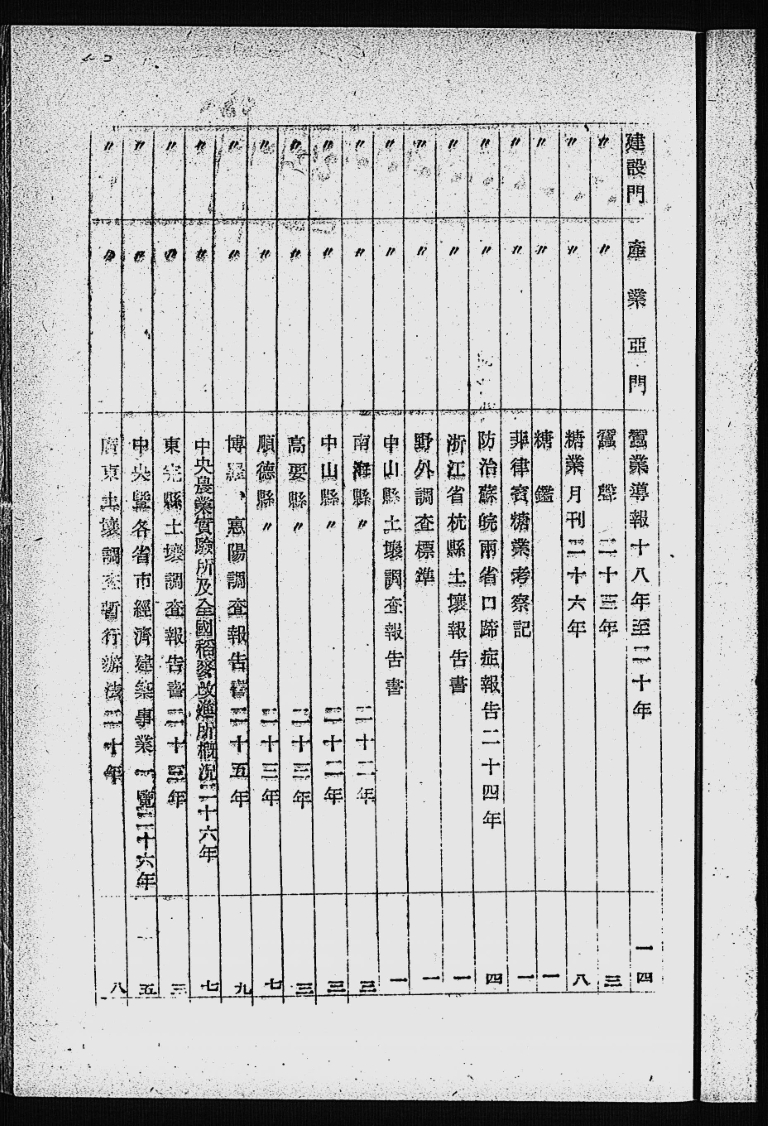 建設門 產業亞門 蠶業導報十八年至二十年 一四
〃 〃 蠶聲 二十三年 三
〃 〃 糖業月刊二十六年 八
〃 〃 糖鑑 一
〃 〃 菲律賓糖業考察記 一
〃 〃 防治蘇皖兩省口蹄症報告二十四年 四
〃 〃 浙江省杭縣土壤報告書 一
〃 〃 野外調查標準 一
〃 〃 中山縣土壤調查報告書 一
〃 〃 南海縣〃 二十二年 三
〃 〃 中山縣〃 二十二年 三
〃 〃 高要縣〃 二十三年 三
〃 〃 順德縣〃 二十三年 七
〃 〃 博羅、惠陽調查報告書二十五年 九
〃 〃 中央農業實驗所及全國稻麥改進所概況二十六年 七
〃 〃 東莞縣土壤調查報告書二十三年 三
〃 〃 中央暨各省市經濟建設事業一覽二十六年 五
〃 〃 廣東土壤調查暫行辦法二十年 八